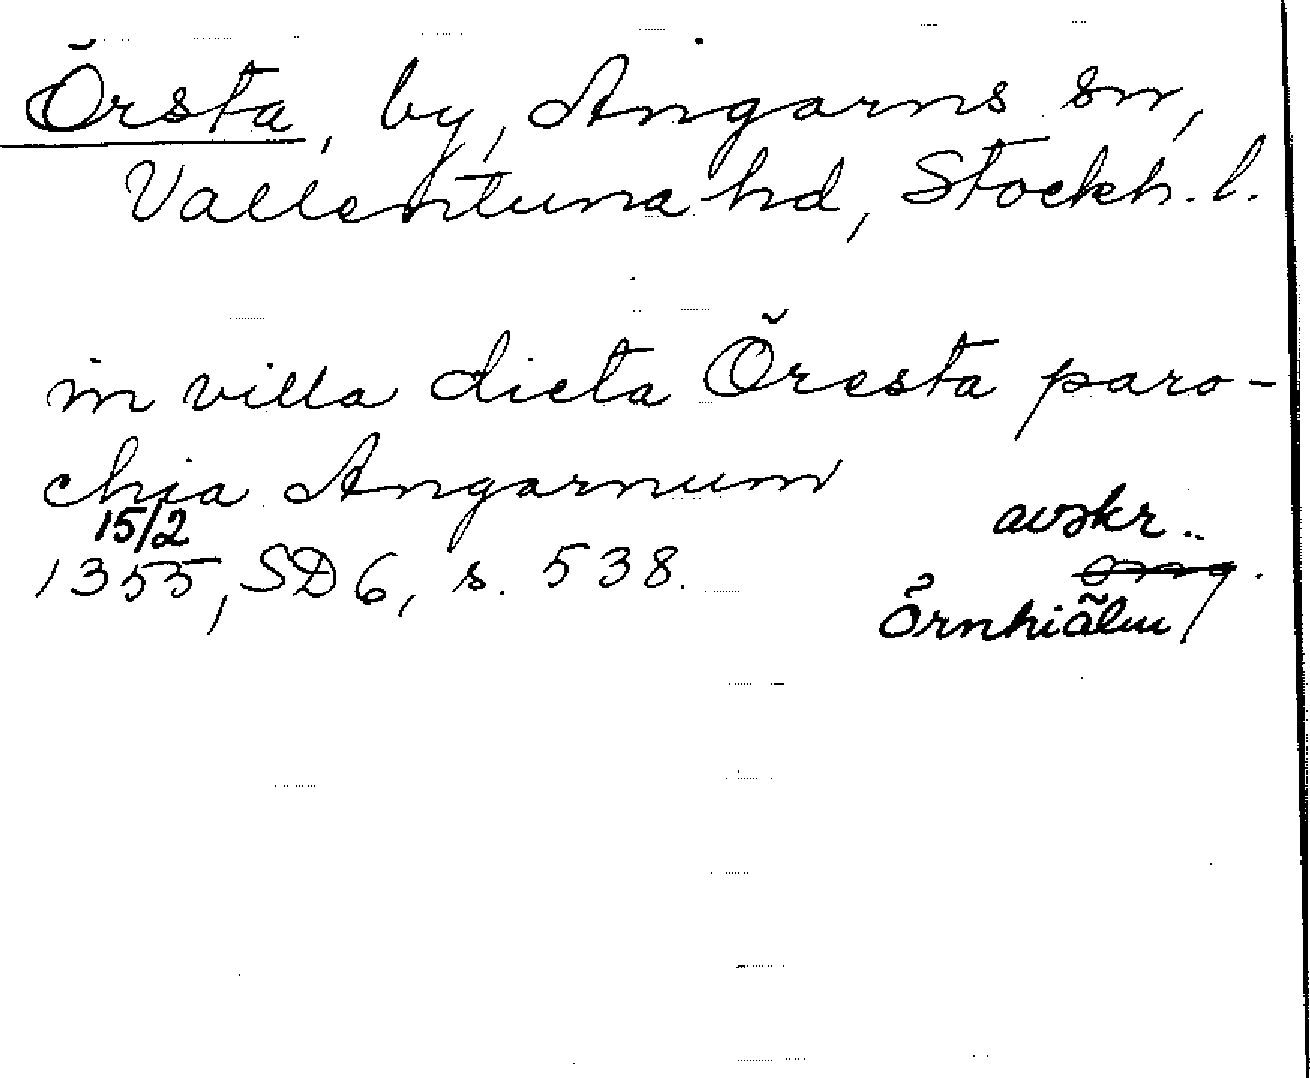 Örsta, by, Angarns sn,
Vallentuna hd, Stockh. l.
in villa dicta Öresta paro-
chia Angarnum
15/2
1355, SD 6, s. 538.
avskr..
orig.
Örnhiälm